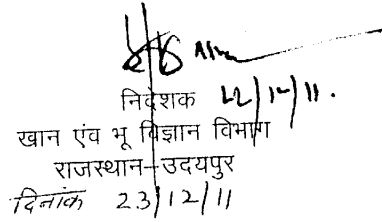 निदेशक 22/12/11.
खान एंव भू विज्ञान विभाग
राजस्थान-उदयपुर
दिनांक 23/12/11